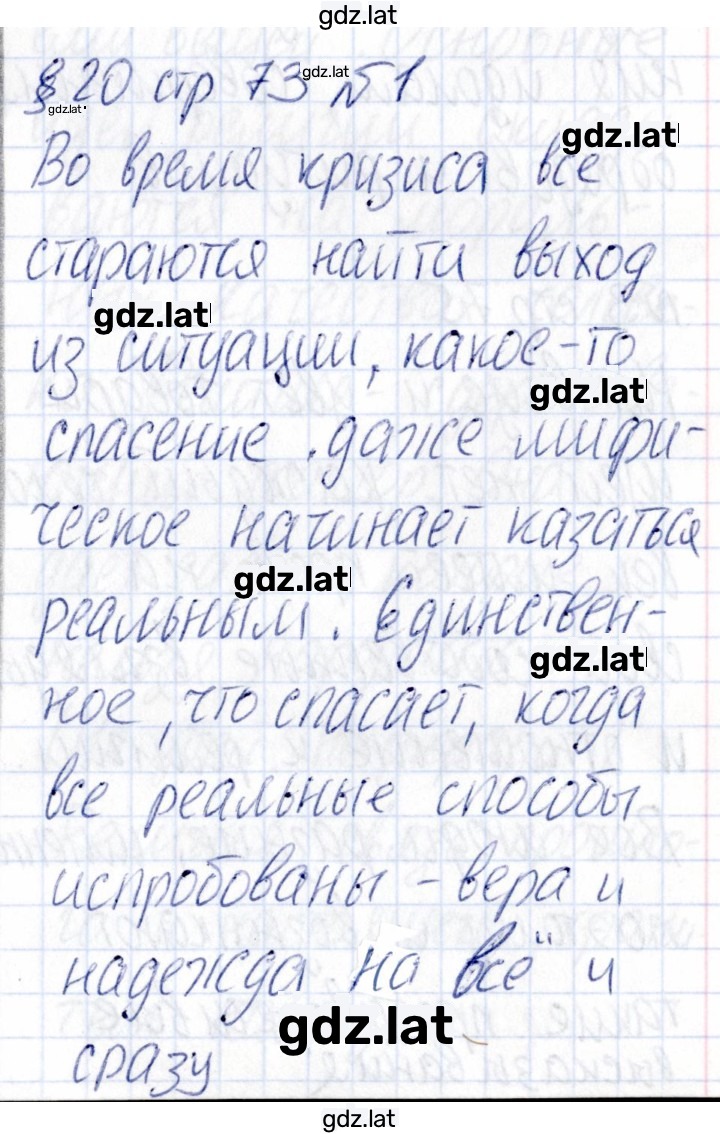 gdz.lat
§ 20 стр 73 gdz.lat №1
gdz.lat
gdz.lat
Во время кризиса все
стараются найти выход
gdz.lat
из ситуации, какое-то
gdz.lat
спасение. даже мифи-
ческое начинает казаться
gdz.lat
реальным. Единствен-
gdz.lat
ное, что спасает, когда
все реальные способы
испробованы - вера и
надежда на всё и
gdz.lat
сразу
gdz.lat